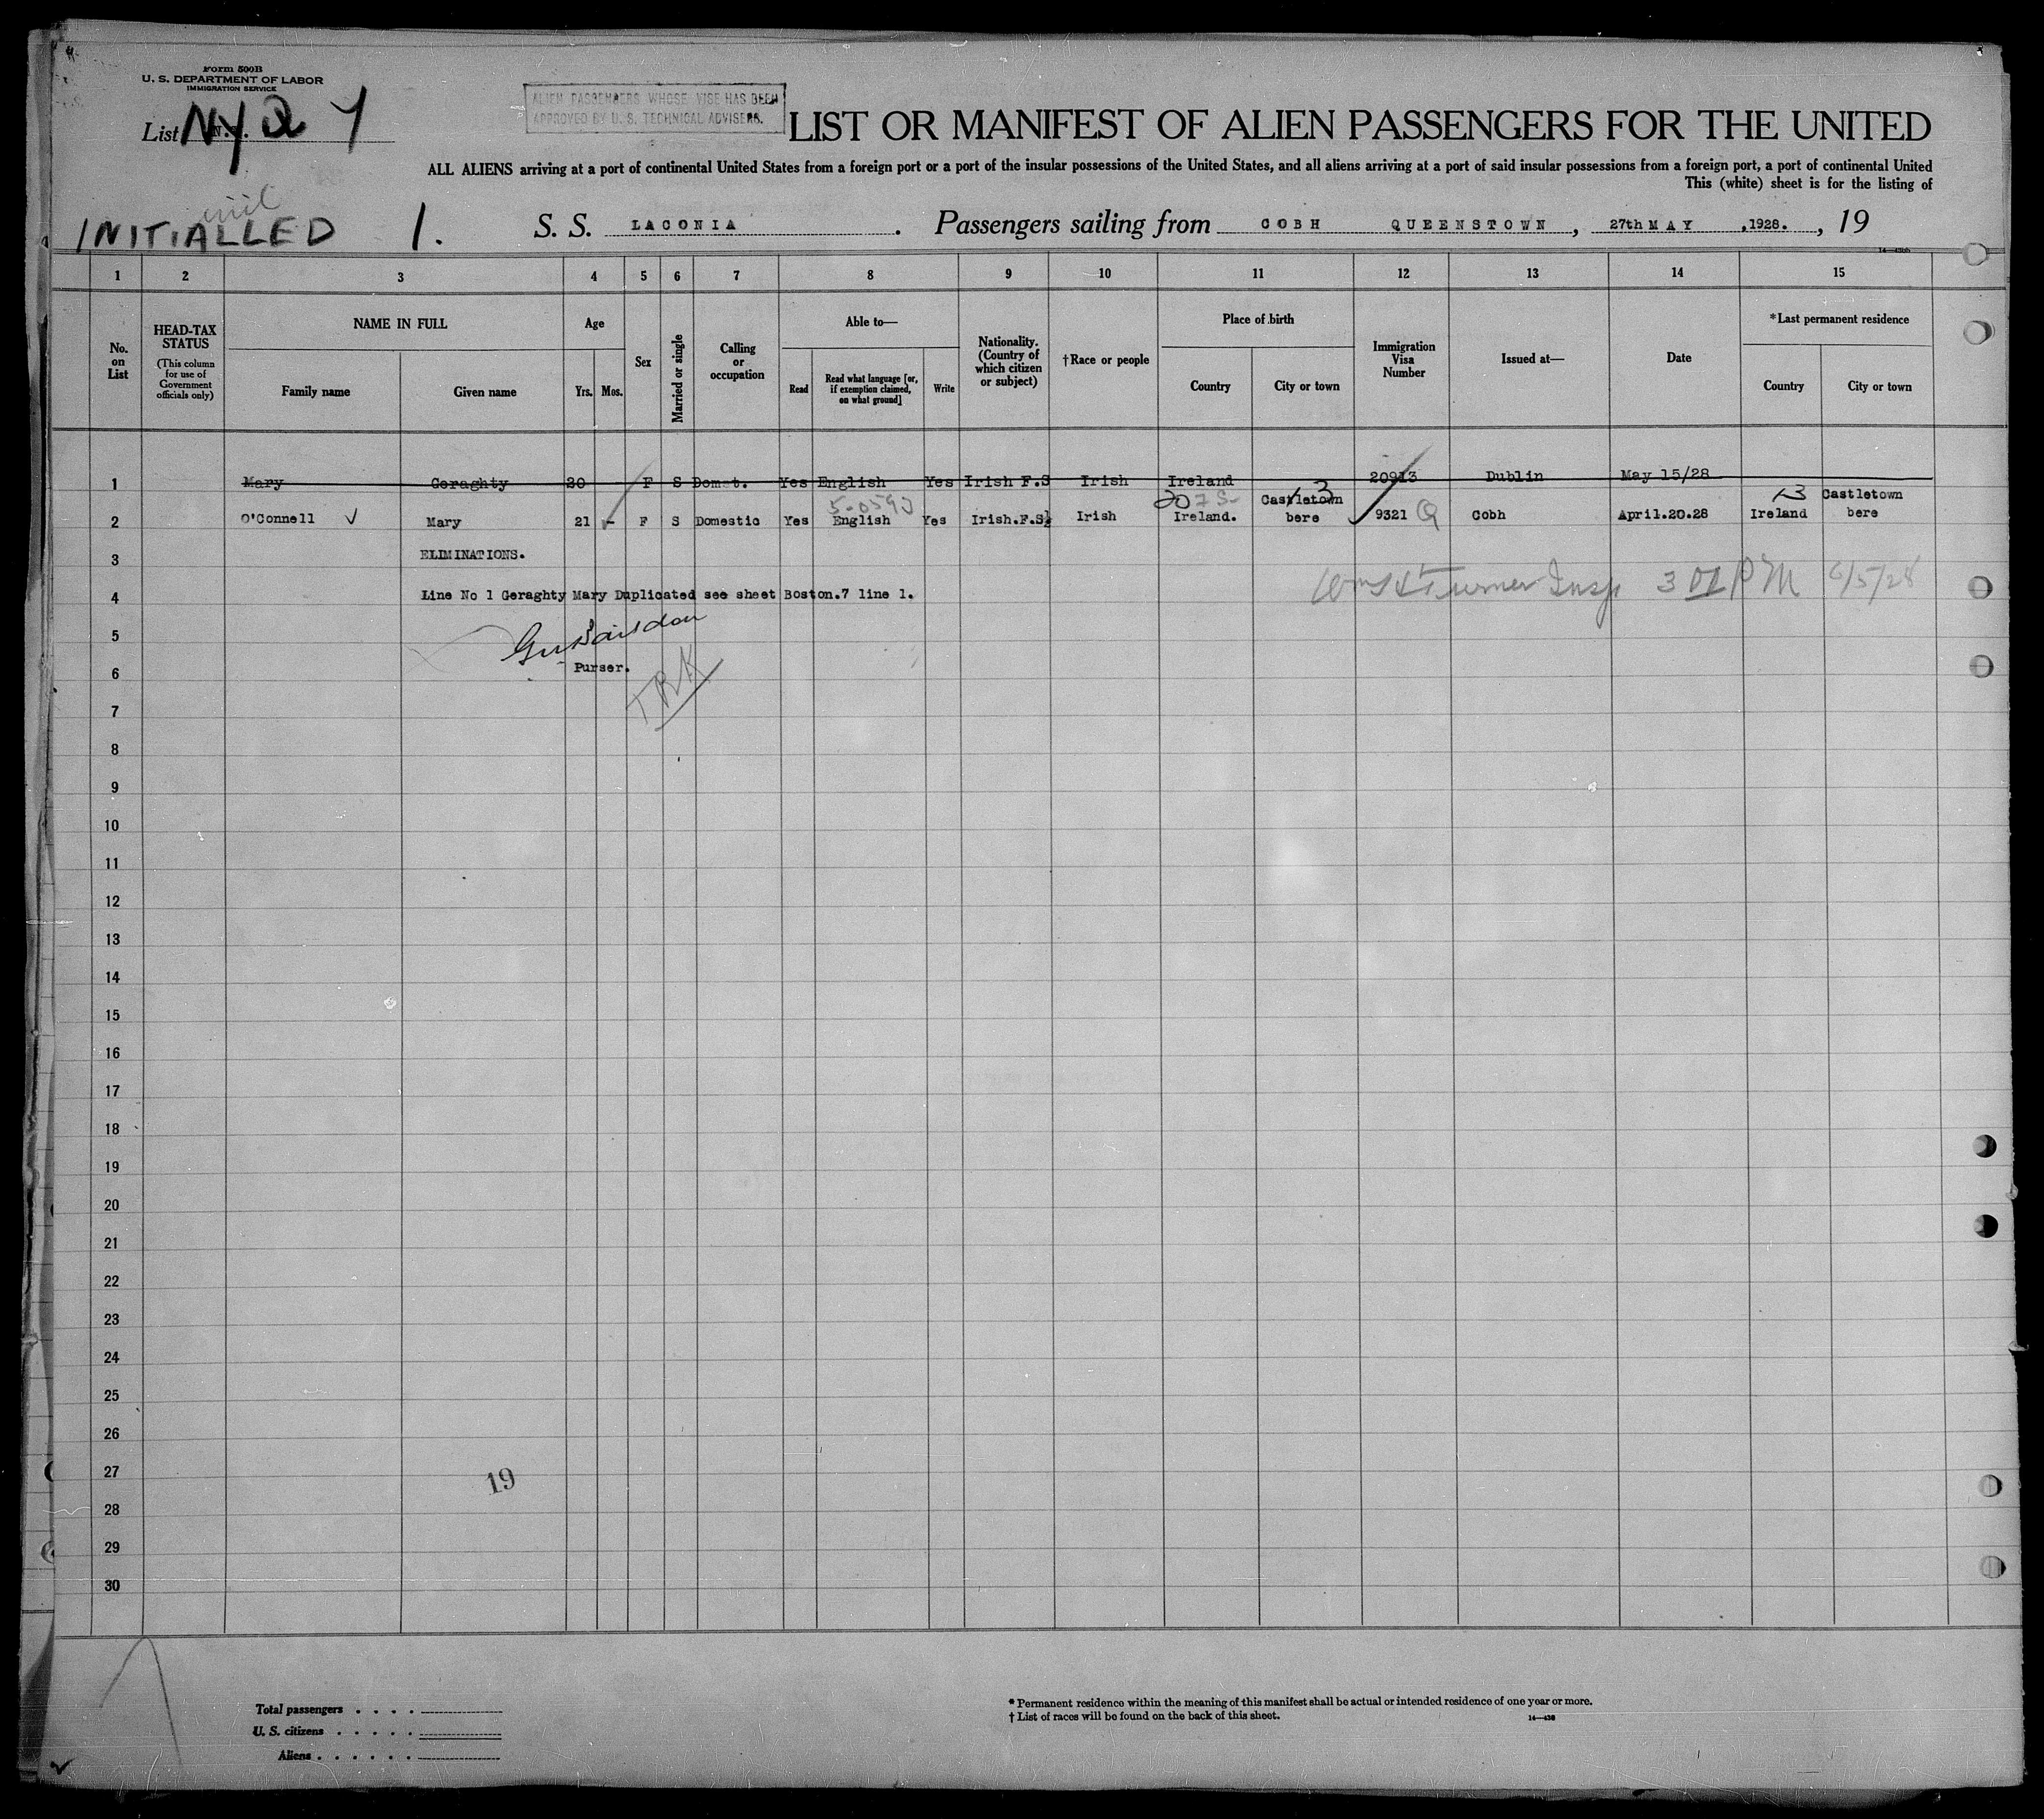 Form 500B
U. S. DEPARTMENT OF LABOR
IMMIGRATION SERVICE
ALIEN PASSENGERS WHOSE VISE HAS BEEN
APPROVED BY U. S. TECHNICAL ADVISERS.
List NY 2
LIST OR MANIFEST OF ALIEN PASSENGERS FOR THE UNITED
ALL ALIENS arriving at a port of continental United States from a foreign port or a port of the insular possessions of the United States, and all aliens arriving at a port of said insular possessions from a foreign port, a port of continental United
This (white) sheet is for the listing of
INITIALLED 1. S. S. LACONIA . Passengers sailing from COBH QUEENSTOWN , 27th MAY ,1928. , 19
1 2 3 4 5 6 7 8 9 10 11 12 13 14 15
No. on List
HEAD-TAX STATUS
(This column for use of Government officials only)
NAME IN FULL
Family name Given name
Age
Yrs. Mos.
Sex
Married or single
Calling or occupation
Able to—
Read
Read what language [or, if exemption claimed, on what ground]
Write
Nationality. (Country of which citizen or subject)
†Race or people
Place of birth
Country City or town
Immigration Visa Number
Issued at—
Date
*Last permanent residence
Country City or town
1 Mary Geraghty 20 F S Domst. Yes English Yes Irish F.S Irish Ireland 20913 Dublin May 15/28
2 O'Connell Mary 21 - F S Domestic Yes English Yes Irish.F.S. Irish Ireland. Castletown bere 9321 Cobh April.20.28 Ireland Castletown bere
3 ELIMINATIONS.
4 Line No 1 Geraghty Mary Duplicated see sheet Boston.7 line 1.
Turner Insp 3 01 PM 6/5/28
5
6 Purser.
TRK
7
8
9
10
11
12
13
14
15
16
17
18
19
20
21
22
23
24
25
26
27
19
28
29
30
Total passengers . . . .
U. S. citizens . . . . .
Aliens . . . . . .
* Permanent residence within the meaning of this manifest shall be actual or intended residence of one year or more.
† List of races will be found on the back of this sheet.
14—438